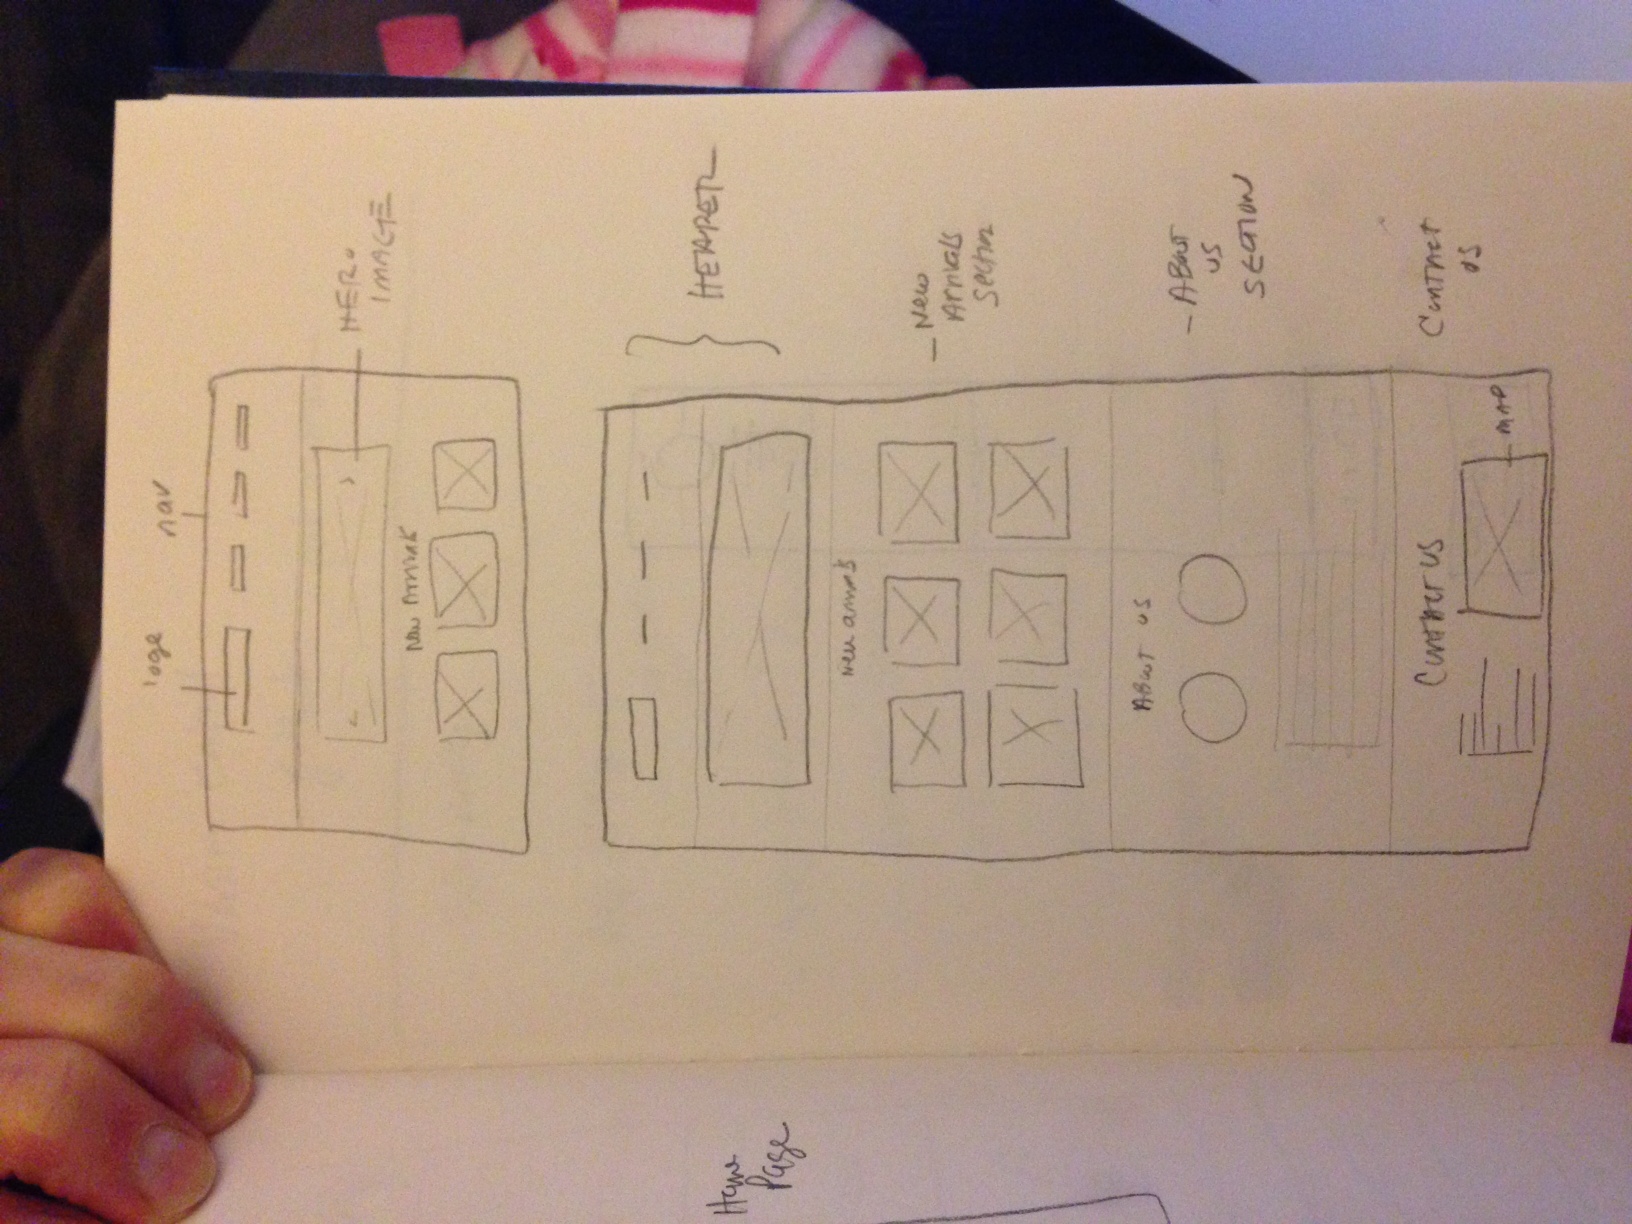 logo
nav
HERO
IMAGE
New Arrivals
Home
Page
HEADER
New arrivals
New
Arrivals
Section
ABout us
ABout
us
SECTION
Contact us
Contact
us
MAP